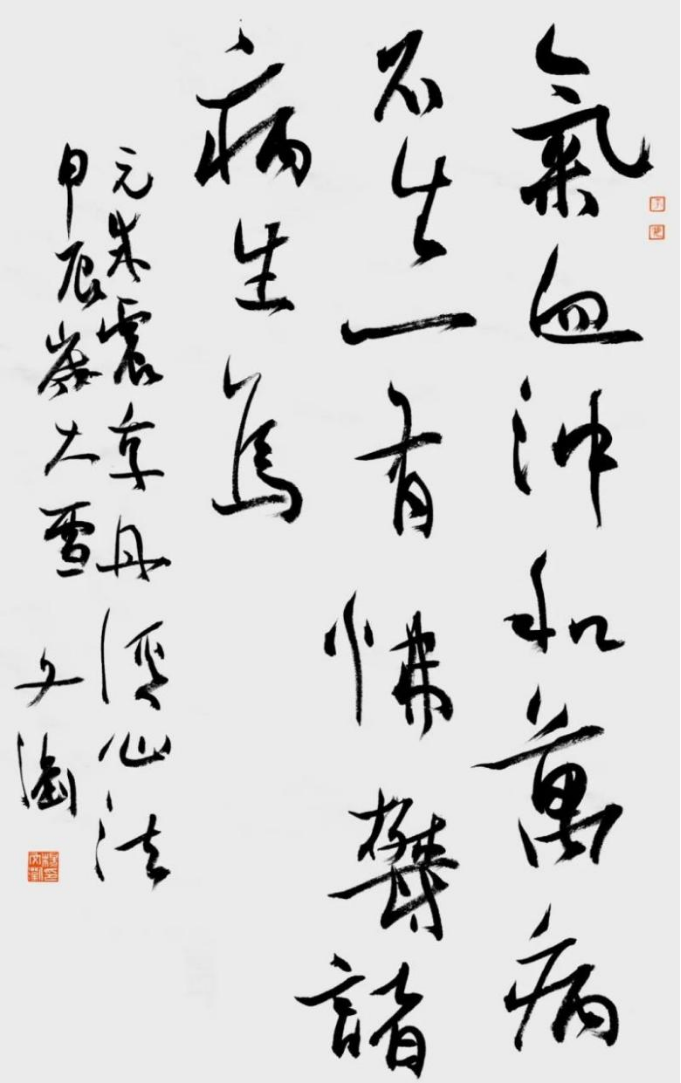 氣血沖和萬病
不生一有怫鬱諸
病生焉
元朱震亨丹溪心法
甲辰歲大雪 文